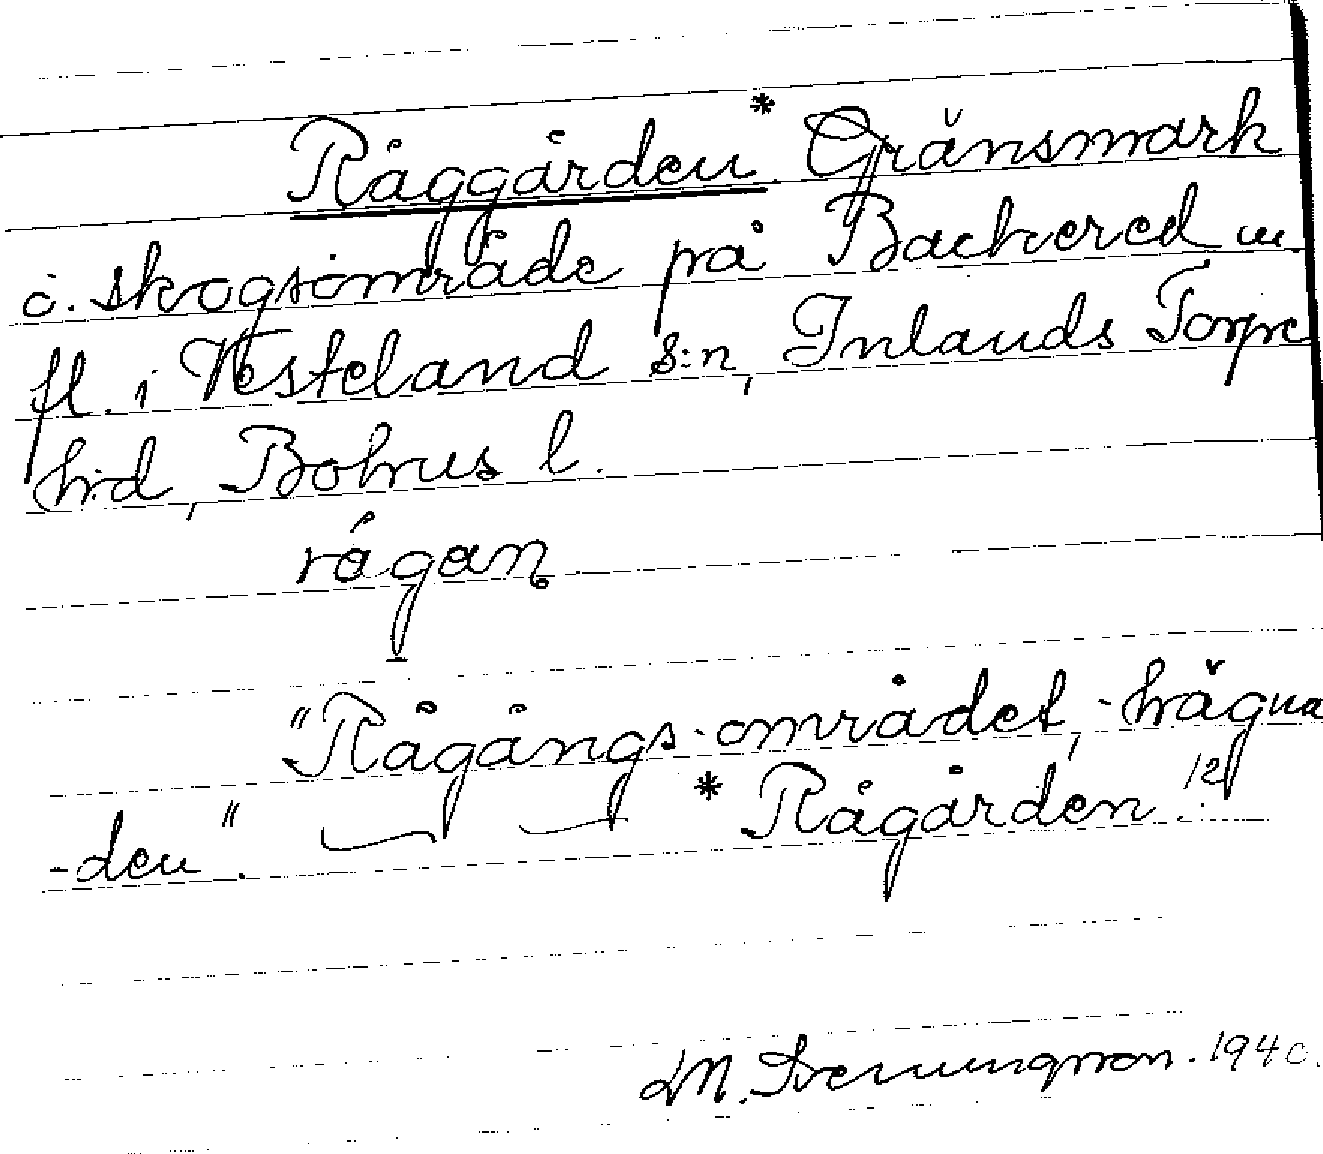 Råggården * Gränsmark
o. skogsområde på Backered m
fl. i Westerland s:n, Inlands Torpe
hrd, Bohus l.
rågan
"Rågångs-området, -hägna
-den". * Rågården 12/
M. Svenungsson. 1940.